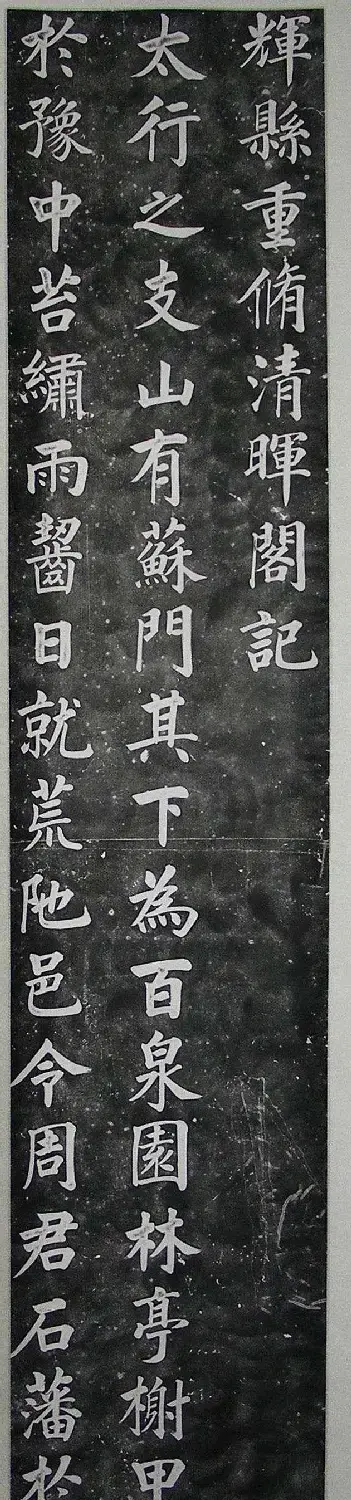 輝縣重脩清暉閣記
太行之支山有蘇門其下為百泉園林亭榭甲
於豫中苔繡雨齧日就荒阤邑令周君石藩於